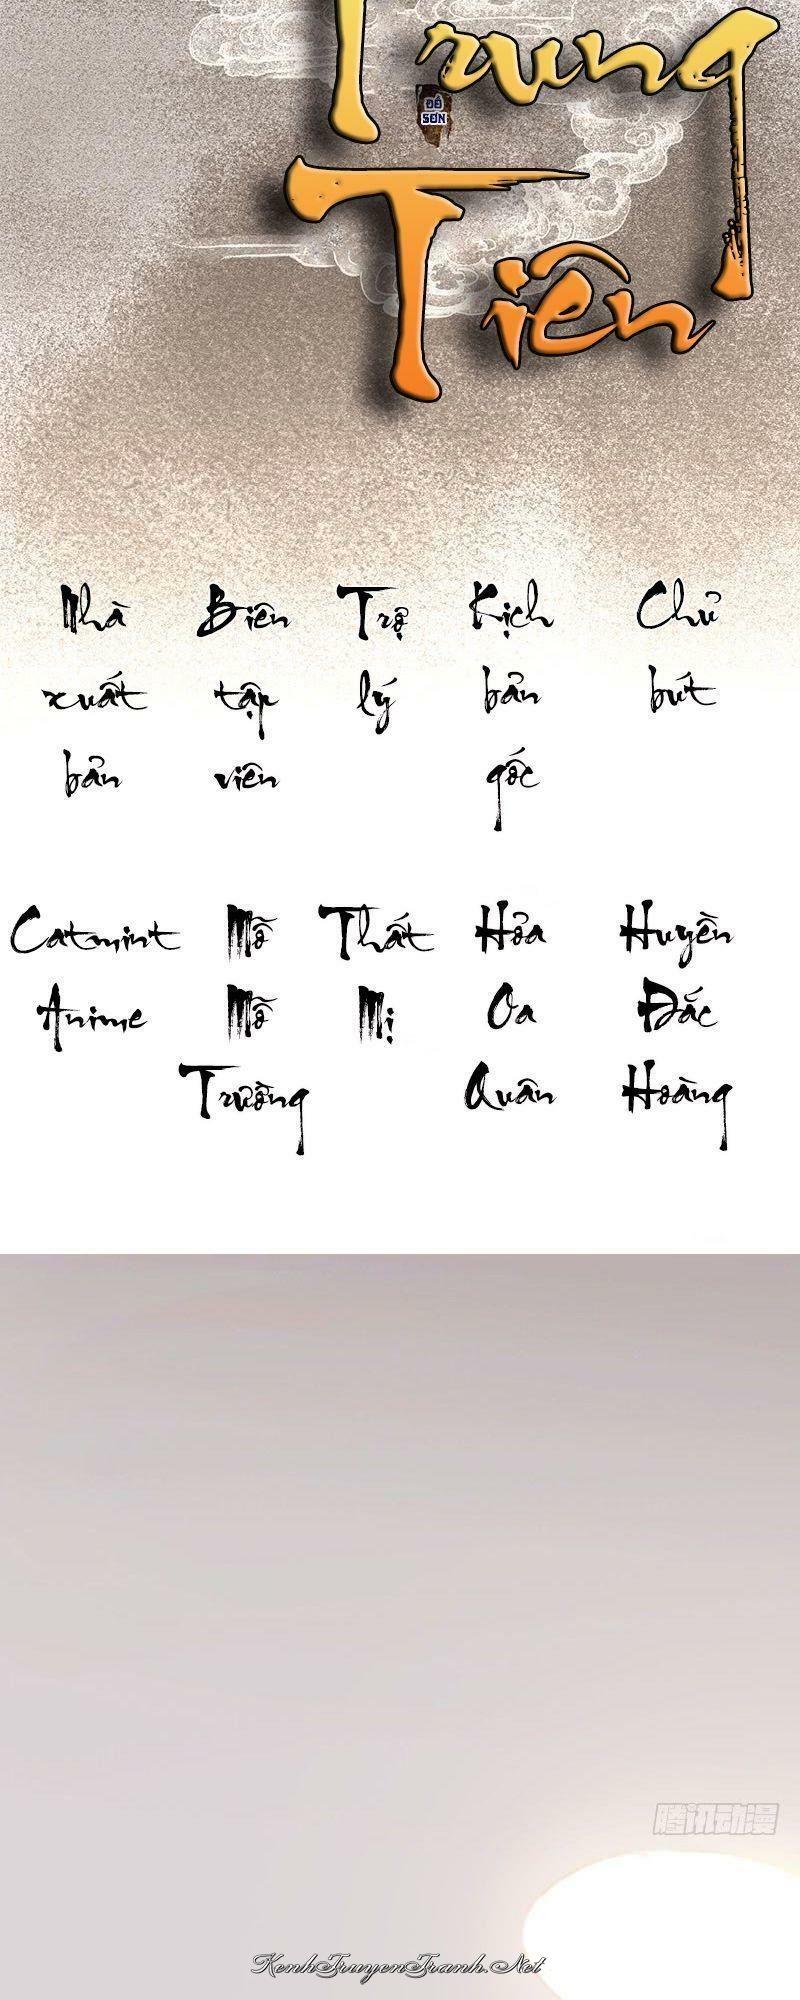 Trung
ĐỀ
SƠN
Tiên
Nhà Biên Trợ Kịch Chủ
xuất tập lý bản bút
bản viên gốc
Catmint Mỗ Thất Hỏa Huyền
Anime Mỗ Mị Oa Đắc
Trường Quân Hoàng
腾讯动漫
KenhTruyenTranh.Net